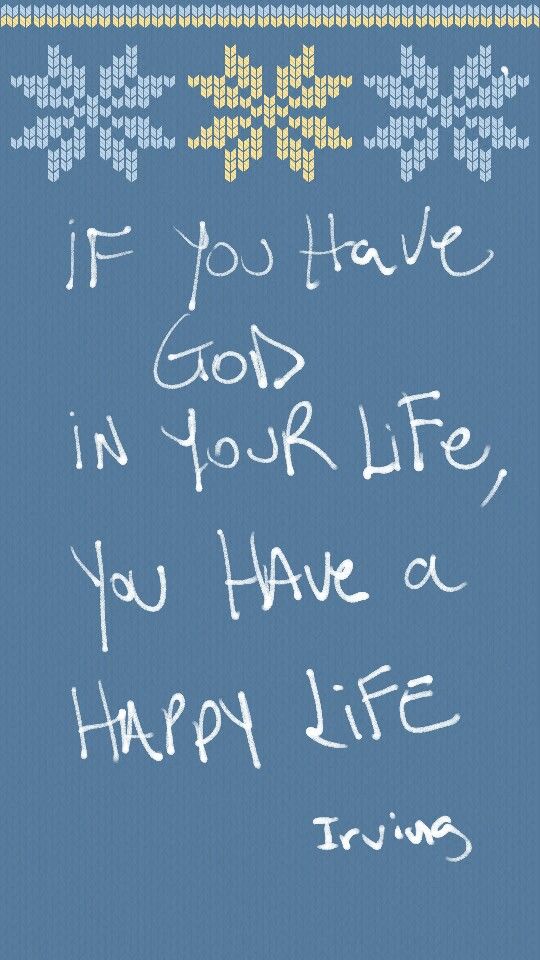 iF You Have
GoD
iN YouR LiFe,
You HAve a
HAPPY LiFE
Irving